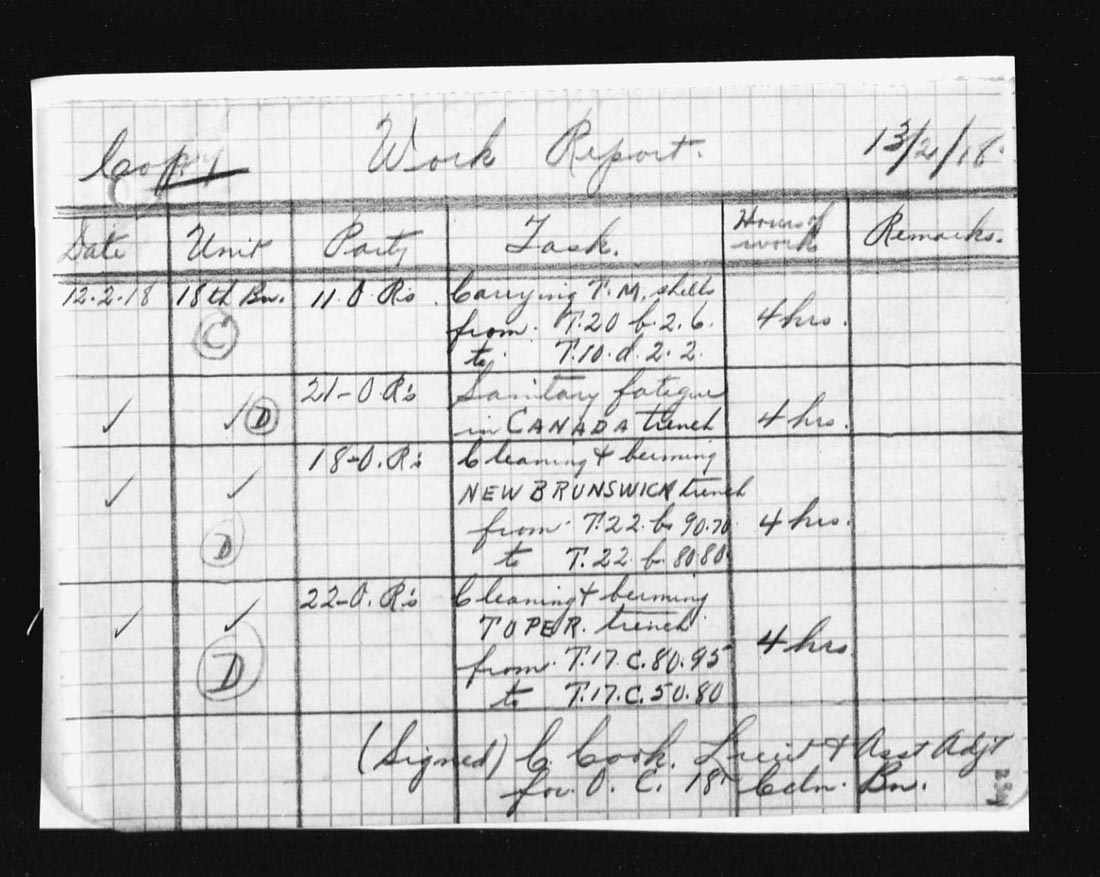 Copy Work Report. 13/2/18.
Date Unit Party Task. Hours of work Remarks.
12.2.18 18th Bn. 11.O.R's. Carrying T.M. shells
C from T.20 b.2.6. 4 hrs.
to T.10.d.2.2.
21-O.R's Sanitary fatigue
✓ ✓ D in CANADA trench 4 hrs.
18-O.R's Cleaning & berming
✓ ✓ NEW BRUNSWICK trench
from T.22.b. 90.70 4 hrs.
D to T.22.b.80 80
22-O.R's Cleaning & berming
✓ ✓ TOPER. trench
from T.17.C.80.95 4 hrs.
D to T.17.C.50.80
(Signed) C. Cook. Lieut & Asst Adjt
for O.C. 18 Cdn. Bn.